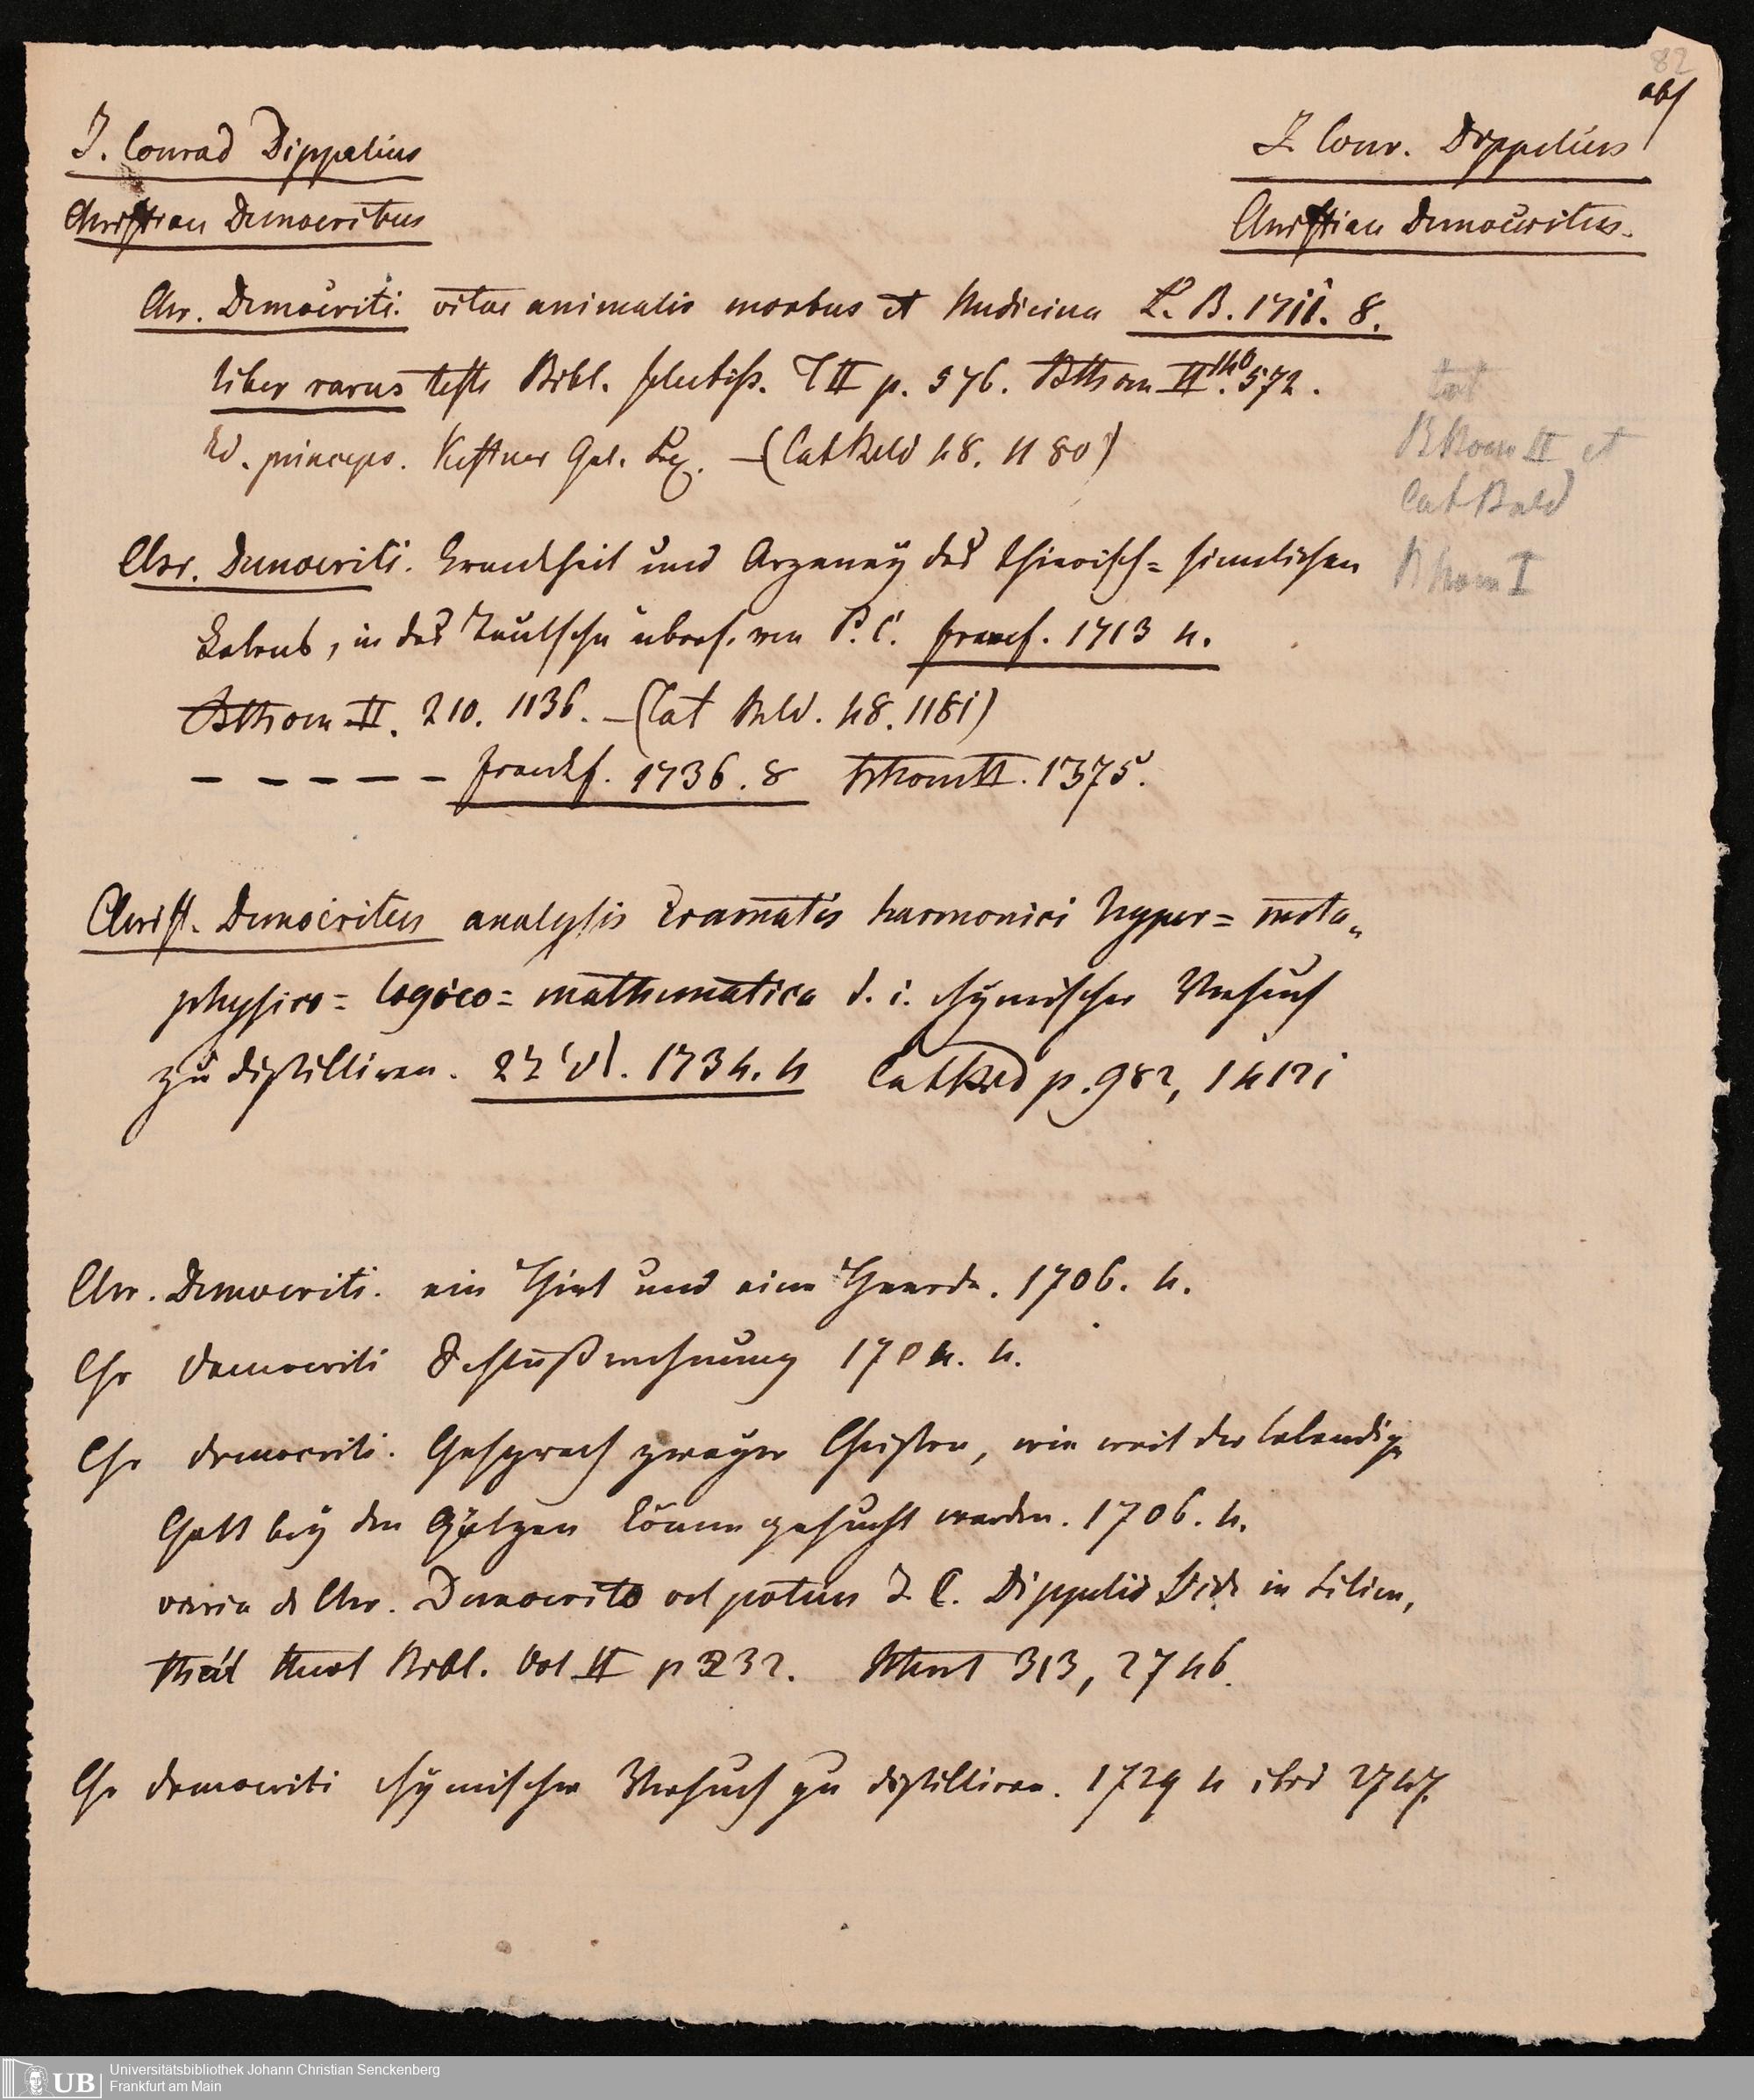 82
abs
J. Conrad Dippelius
J. Conr. Dippelius
Christian Democritus
Christian Democritus.
Chr. Democriti. vitae animalis morbus et Medicina L. B. 1711. 8.
liber rarus teste Bibl. selectiss. T II p. 576. BThom II. 572.
Ed. princeps. Kestner Gel. Lex. — (Cat Bald 48. 1180)
tot
BThom II et
Cat Bald
BThom I
Chr. Democriti. Krankheit und Arzeney des thierisch= sinnlichen
Lebens, in das Teutsche übers. von P. C. Francf. 1713 4.
BThom II. 210. 1136. — (Cat Bald. 48. 1181)
— — — — — — Frankf. 1736. 8 BThom II. 1375.
Christ. Democritus analysis Cramatis harmonici hyper= meta„
physico= logico= mathematica d. i. chymischer Versuch
zu distilliren. 1734. 4 Cat Bald p. 982, 14121
Chr. Democriti. ein Hirt und eine Heerde. 1706. 4.
Chr Democriti Schlußrechnung 1704. 4.
Chr Democriti. Gespräch zweyer Christen, wie weit der lebendige
Gott bey den Götzen könne gesucht werden. 1706. 4.
varia de Chr. Democrito vel potius J. C. Dippelio Vide in Lilien,
thal Bibl. Vol II p 232. 313, 2746.
Chr Democriti chymischer Versuch zu distilliren. 1729 4 ibid 2747.
UB
Universitätsbibliothek Johann Christian Senckenberg
Frankfurt am Main